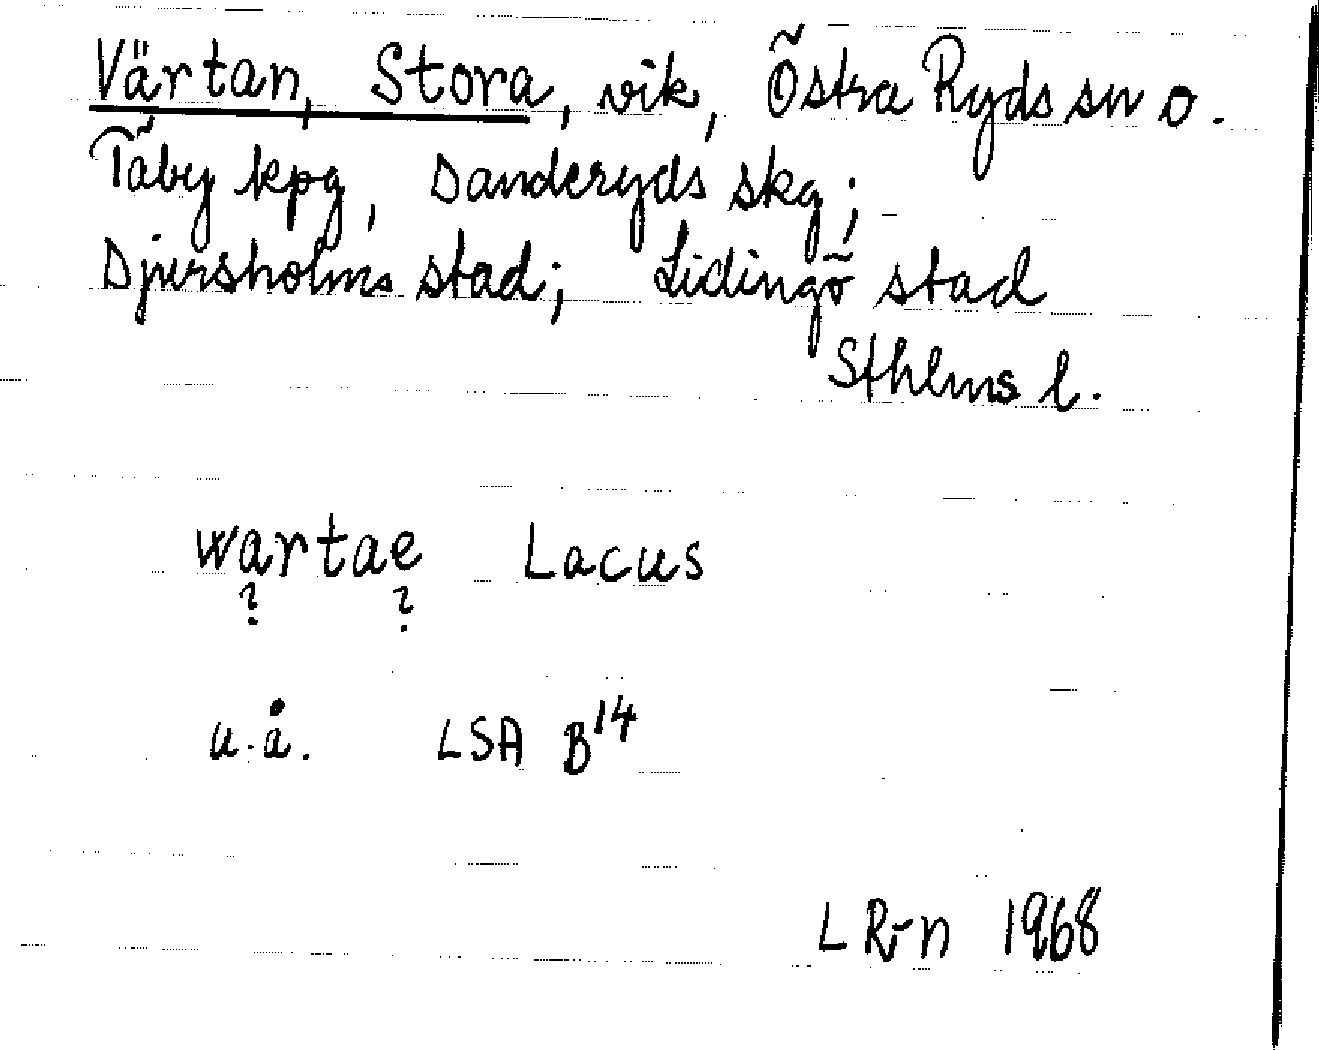 Värtan, Stora, vik, Östra Ryds sn o.
Täby kpg, Danderyds skg;
Djursholms stad; Lidingö stad
Sthlms l.
Wartae Lacus
? ?
u.å. LSA B14
L R-n 1968